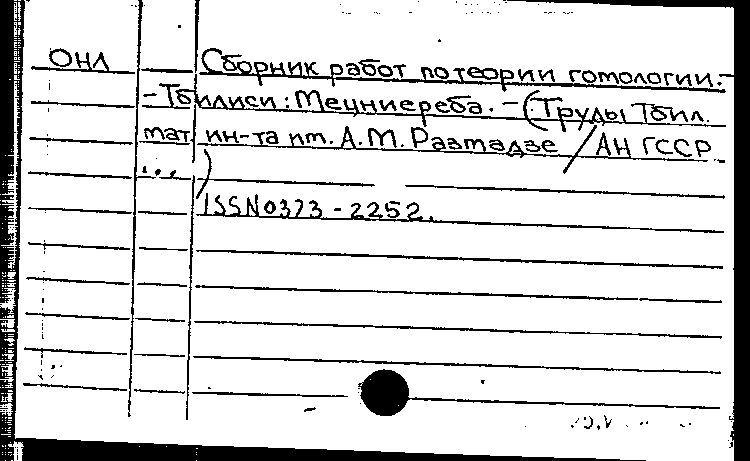 ОНЛ
Сборник работ по теории гомологии. -
- Тбилиси : Мецниереба. - (Труды Тбил.
мат. ин-та им. А.М. Размадзе / АН ГССР
...)
ISSN 0373 - 2252.